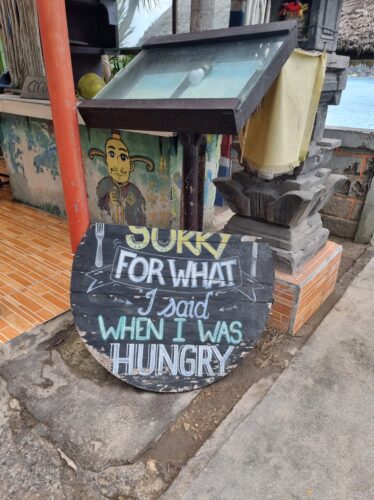 SORRY
FOR WHAT
I said
WHEN I WAS
HUNGRY